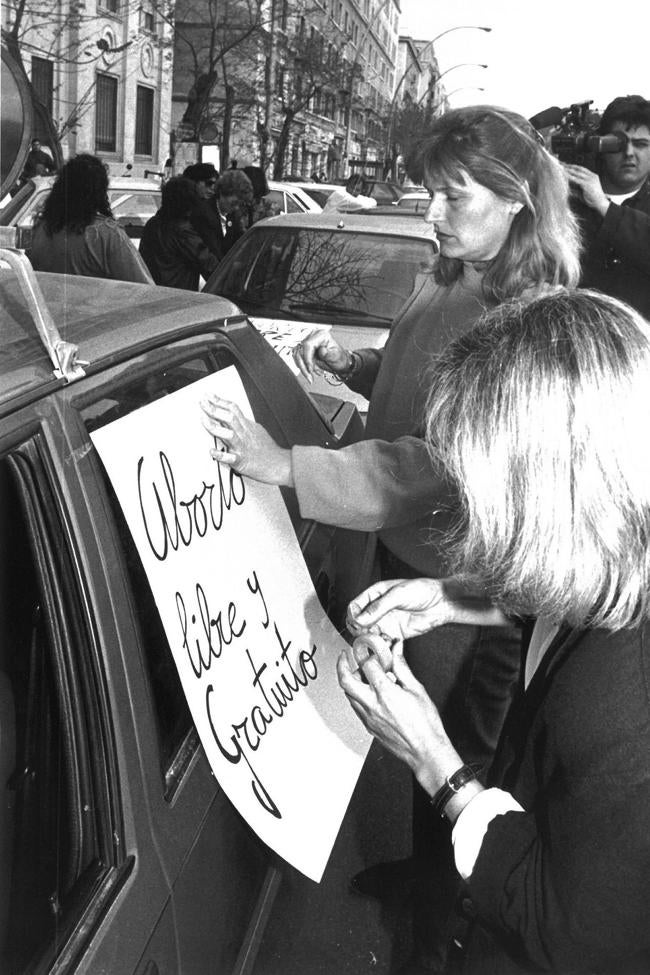 Aborto
libre y
Gratuito